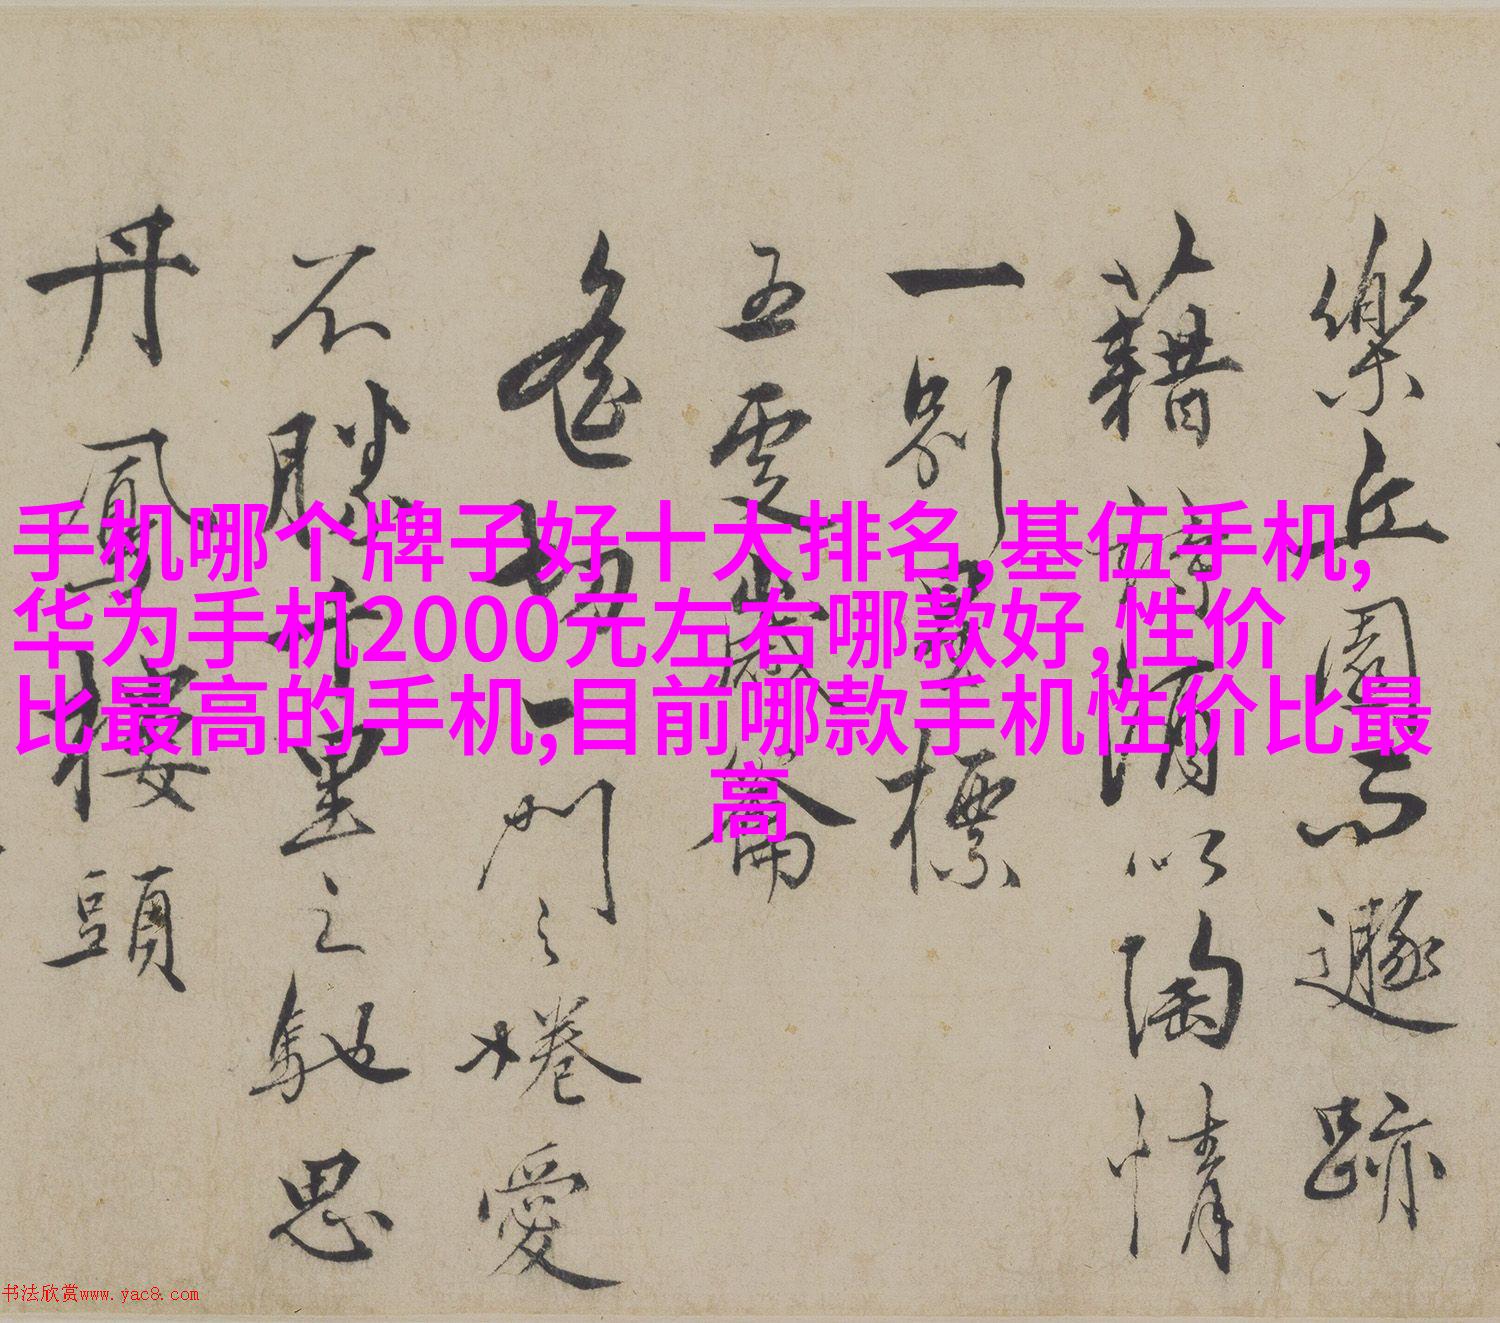 手机哪个牌子好十大排名,基伍手机,
华为手机2000元左右哪款好,性价
比最高的手机,目前哪款手机性价比最
高
樂丘園而遯跡
藉詩酒以陶情
一別標
五雲歲
遙切一門之婘愛
不勝千里之馳思
丹鳳樓頭
书法欣赏www.yac8.com